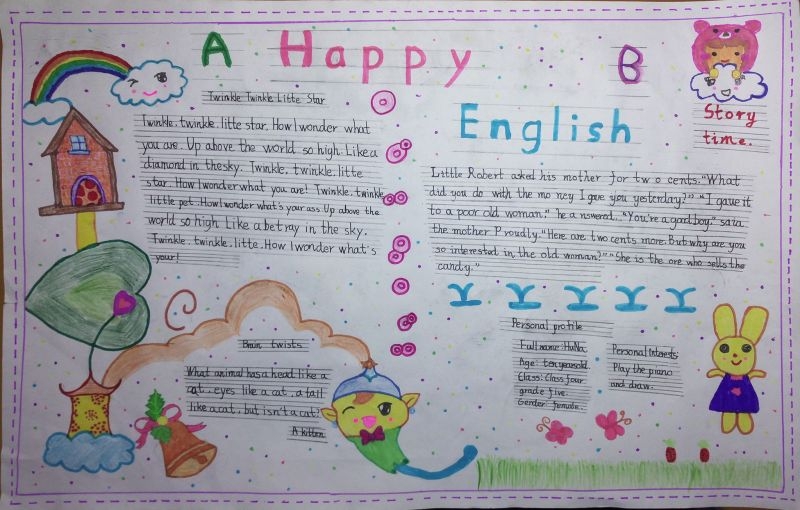 A Happy B
English
Story
time.
Twinkle Twinkle Litte Star
Twinkle. twinkle. litte star. How I wonder what
you are. Up above the world so high. Like a
diamond in the sky. Twinkle. twinkle. litte
star. How I wonder what you are! Twinkle. twinkle
little pet. How I wonder what's your ass. Up above the
world so high Like a betray in the sky.
Twinkle. twinkle. litte. How I wonder what's
your!
Little Robert asked his mother for two cents. "What
did you do with the money I gave you yesterday?" "I gave it
to a poor old woman." he answered.. "You're a good boy." said
the mother Proudly. "Here are two cents more. But why are you
so interested in the old woman?" "She is the one who sells the
candy."
Brain twists
What animal has a head like a
cat. eyes like a cat. a tail
like a cat. but isn't a cat?
A kitten
Personal profile
Full name: HuNa.
Age: ten years old.
Class: Class four
grade five.
Gender: female.
Personal Interests:
Play the piano
and draw.